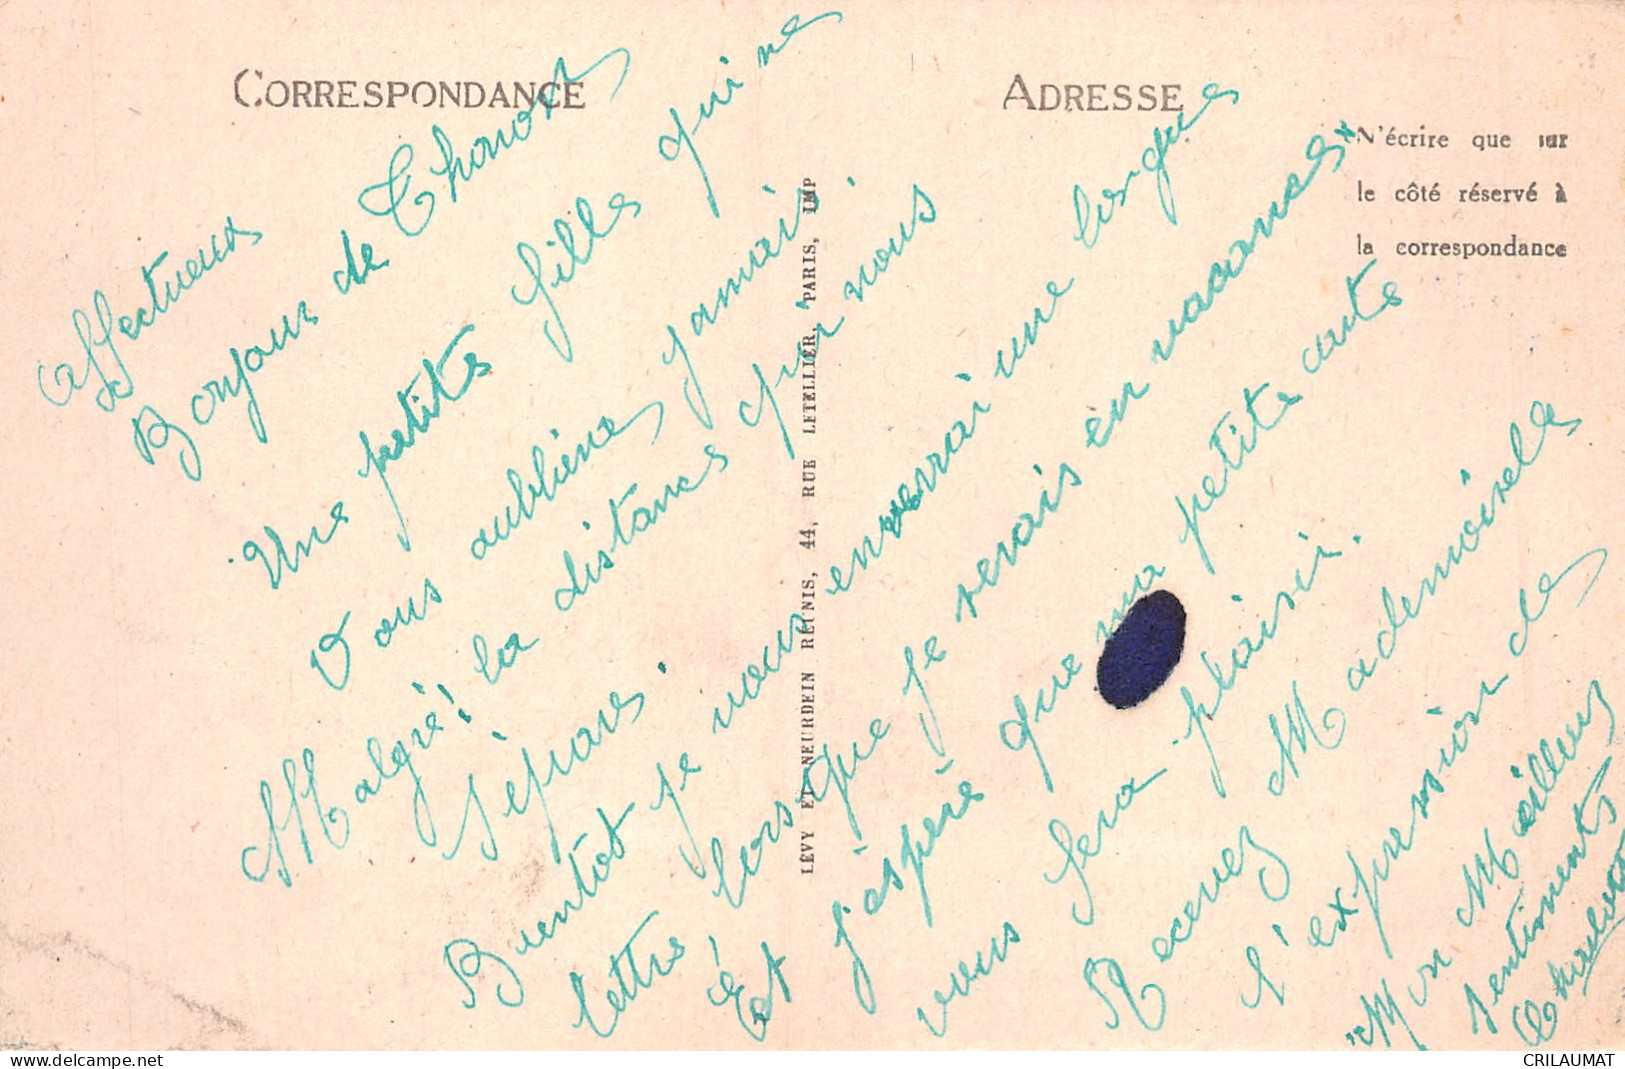 CORRESPONDANCE
ADRESSE
N'écrire que sur
le côté réservé à
la correspondance
LÉVY ET NEURDEIN RÉUNIS, 44, RUE LETELLIER, PARIS, IMP
Affectueux
Bonjour de Thonon
Une petites filles qui ne
Vous oublieras jamais
Malgré! la distance qui nous
sépares.
Bientot je vous enverrai une longues
lettre lorsque je serais en vacances
Et j'espère que ma petite carte
vous fera plaisir.
Recevez Mademoiselle
l'expression de
Mon Meilleurs
sentiments
Charlotte
delcampe.net
CRILAUMAT